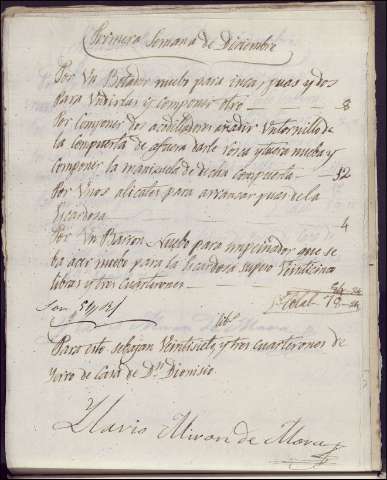 Primera Semana de Diciembre
Por Un Botador nuebo para inca, puas y dos
para Undirlas y componer otro 8
Por Componer dos acodilladores añadir Un tornillo de
la Compuerta de afuera darle rosca y tuerca nueba y
Componer la maniquela de dicha Compuerta 12
Por Unos alicates para arrancar puas de la
Cicardosa 4
Por Un Barron Nuebo para impeinador que se
ba acer nuebo para la Cicardosa supeso Veinticinco
libras y tres cuarterones
Total
Para esto se bajan Veintisiete y tres cuarterones de
Yerro de Casa de Dn Dionisio
de Mora